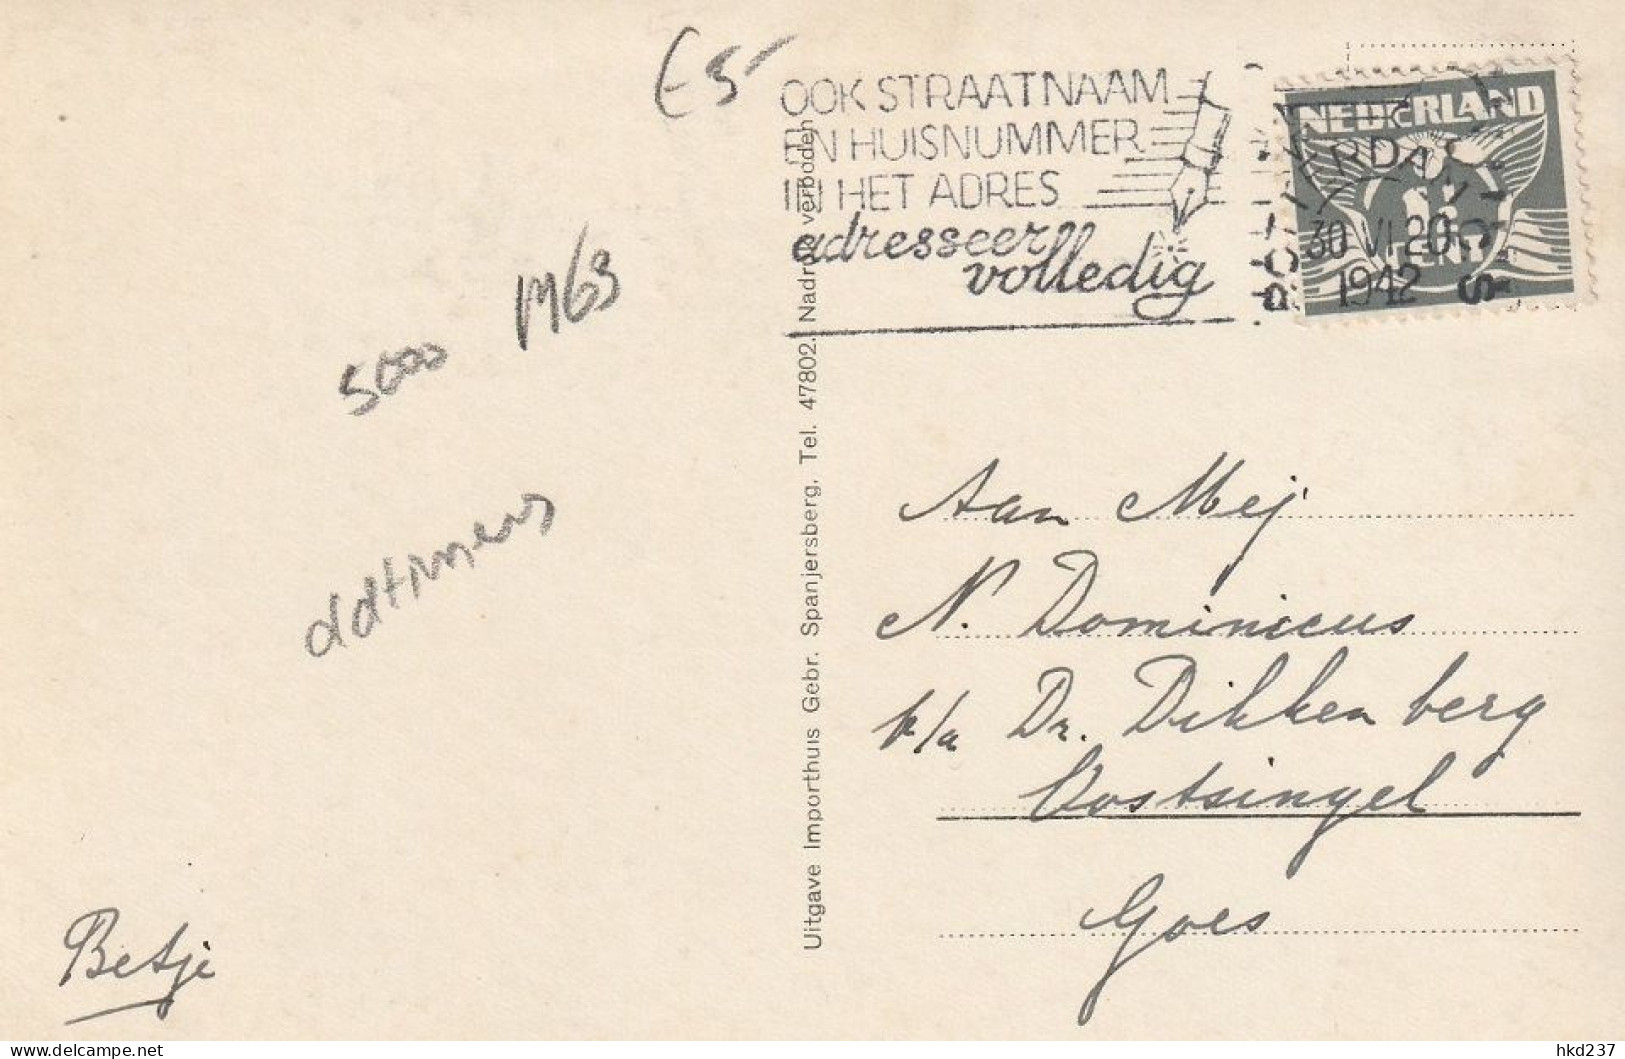 E 5-
OOK STRAATNAAM
EN HUISNUMMER
IN HET ADRES
adresseer
volledig
NEDERLAND
ROTTERDAM
30 VI 20
1942
CENT
5000 M63
oldtimers
Uitgave Importhuis Gebr. Spanjersberg, Tel. 47802. Nadruk verboden
Aan Mej
N. Dominicus
p/a Dr. Dikkenberg
Oostsingel
Goes
Betje
delcampe.net
hkd237